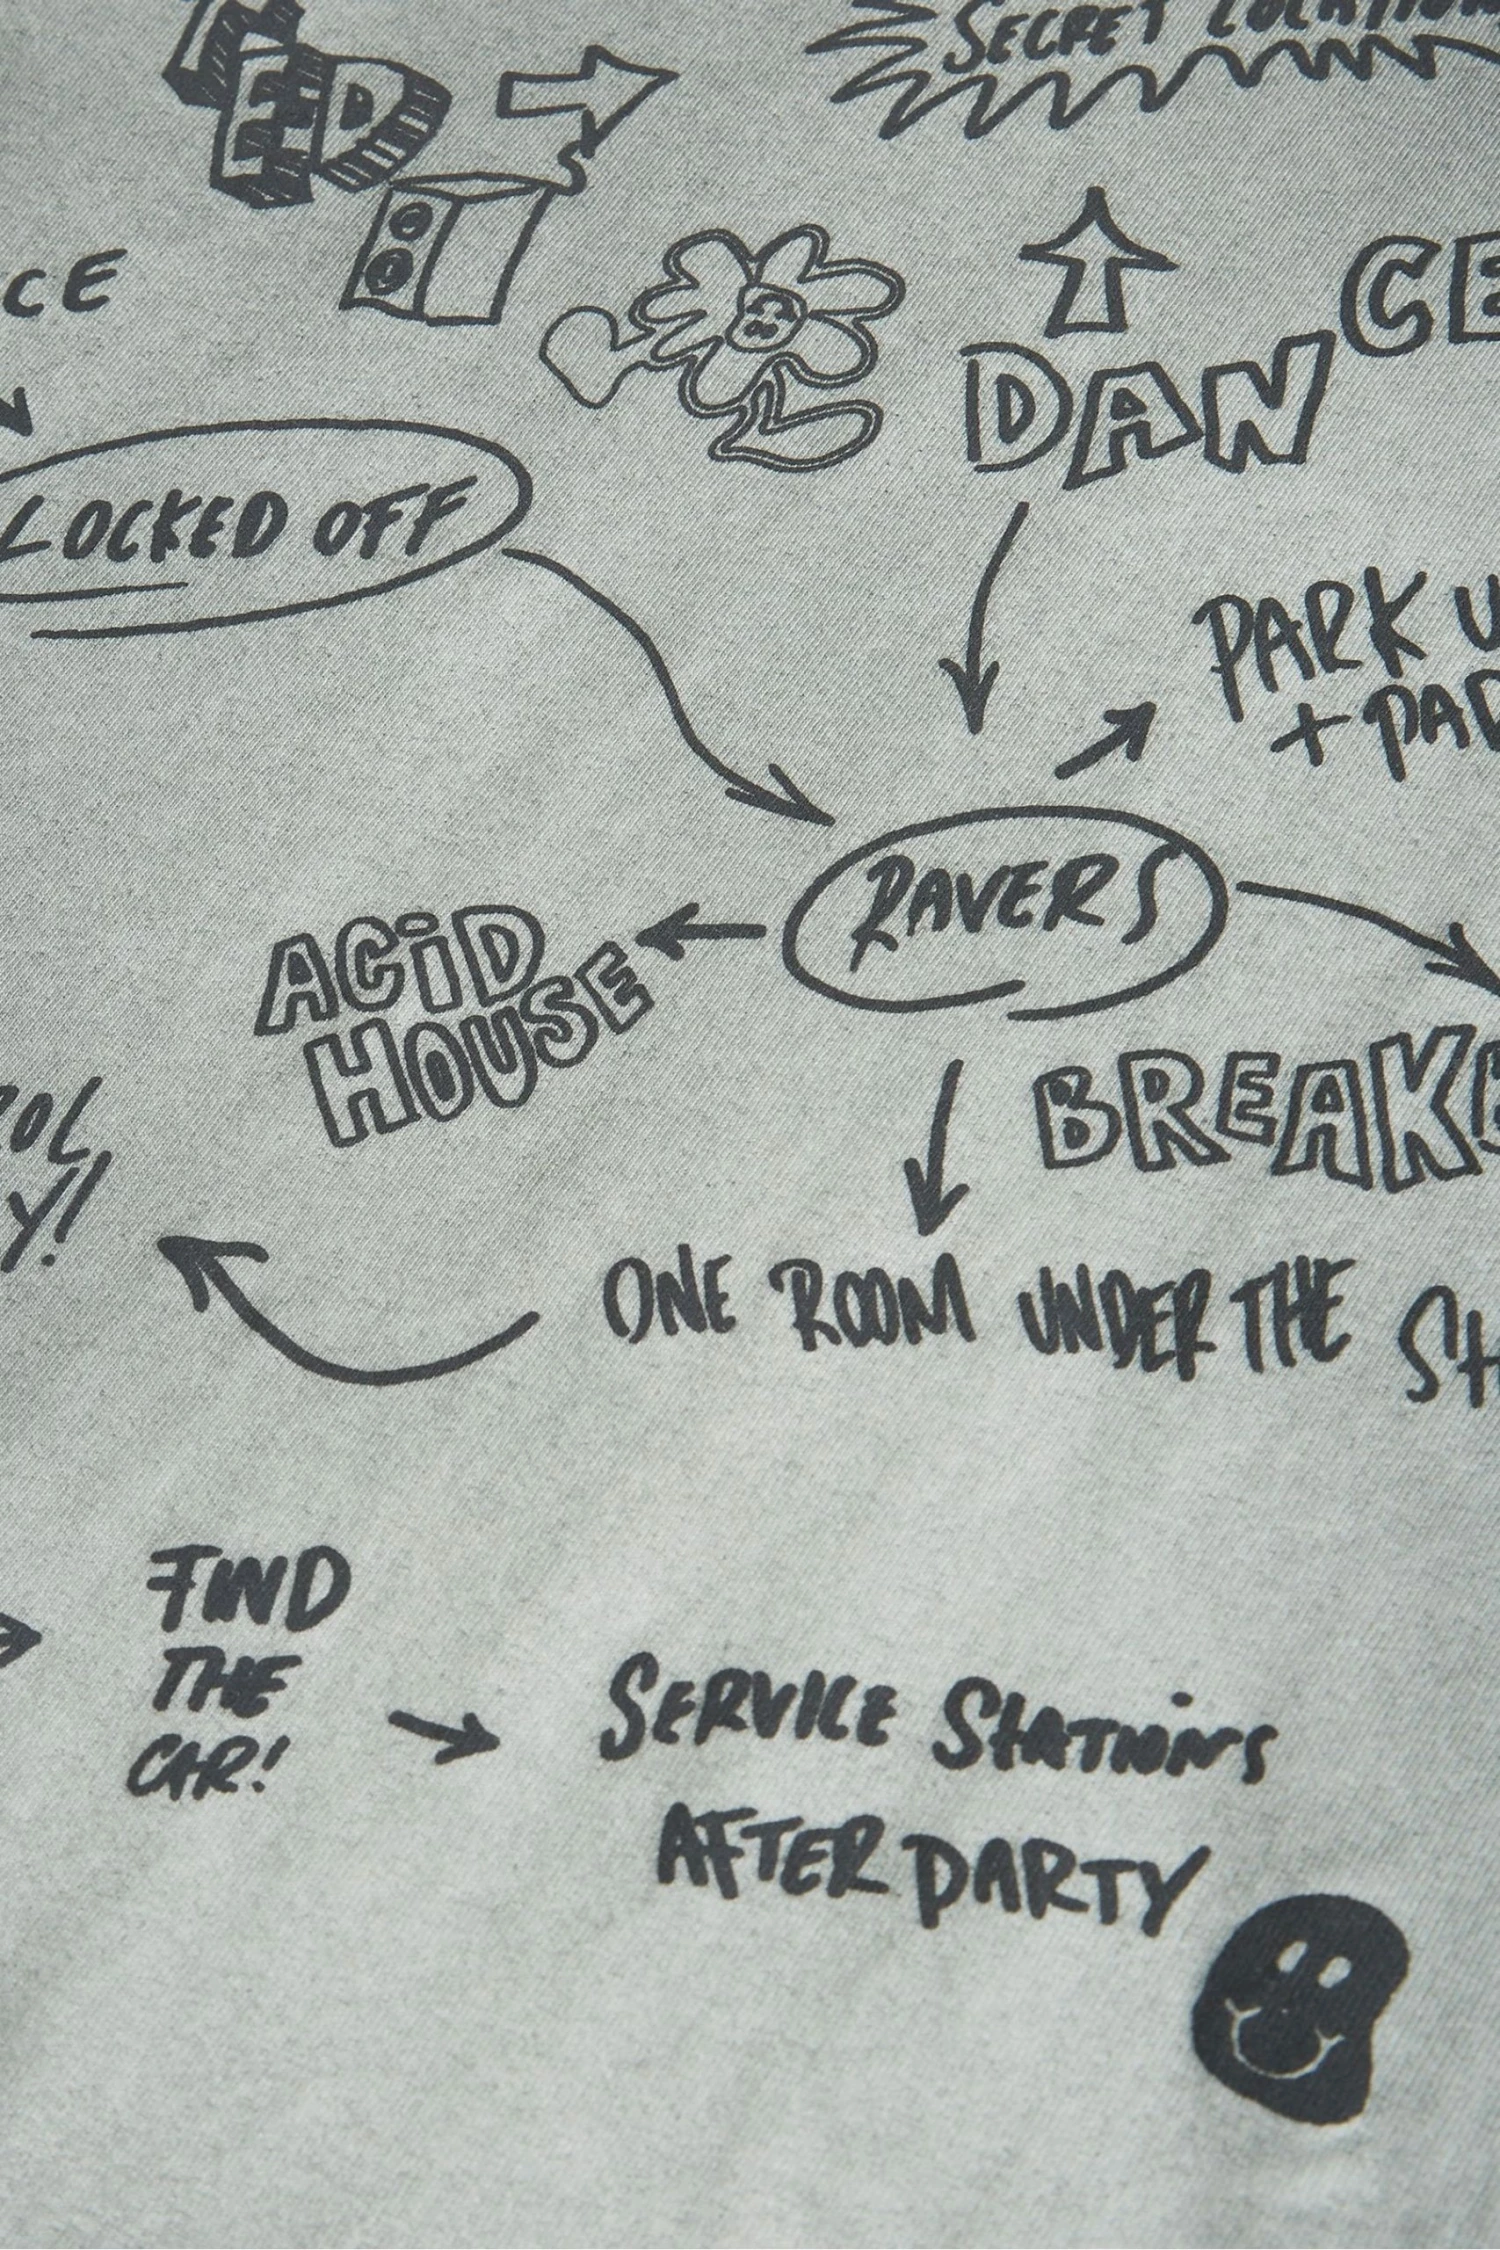 SECRET LOCATION
ED
CE
DANCE
LOCKED OFF
PARK U
+ PAR
RAVERS
ACiD
HOUSE
OL
Y!
BREAKB
ONE ROOM UNDER THE
FIND
THE
CAR!
SERVICE STATIONS
AFTER PARTY